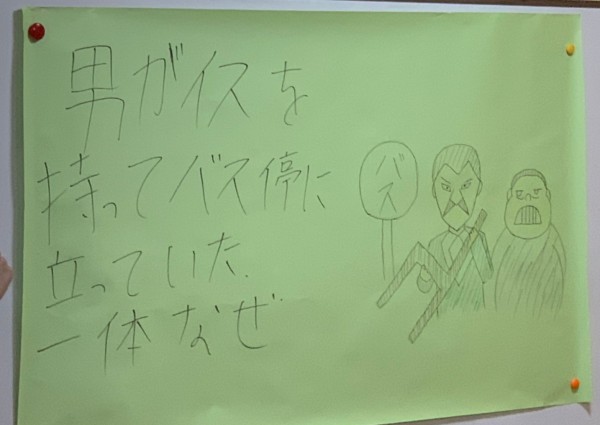 男がイスを
持ってバス停に
立っていた.
一体なぜ
バス